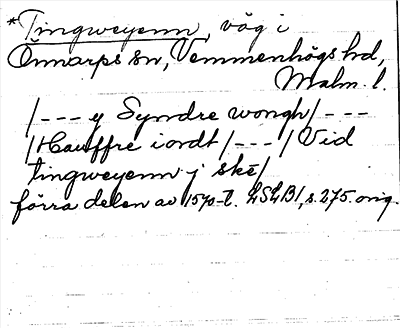 *Tingweyenn, väg i
Önnarps sn, Vemmenhögs hd,
Malm. l.
/--- y Syndre wongh/---
/Hauffre iordt/---/Vid
tingweyenn j skē/
förra delen av 1570-t. LSLB1, s. 275. orig.